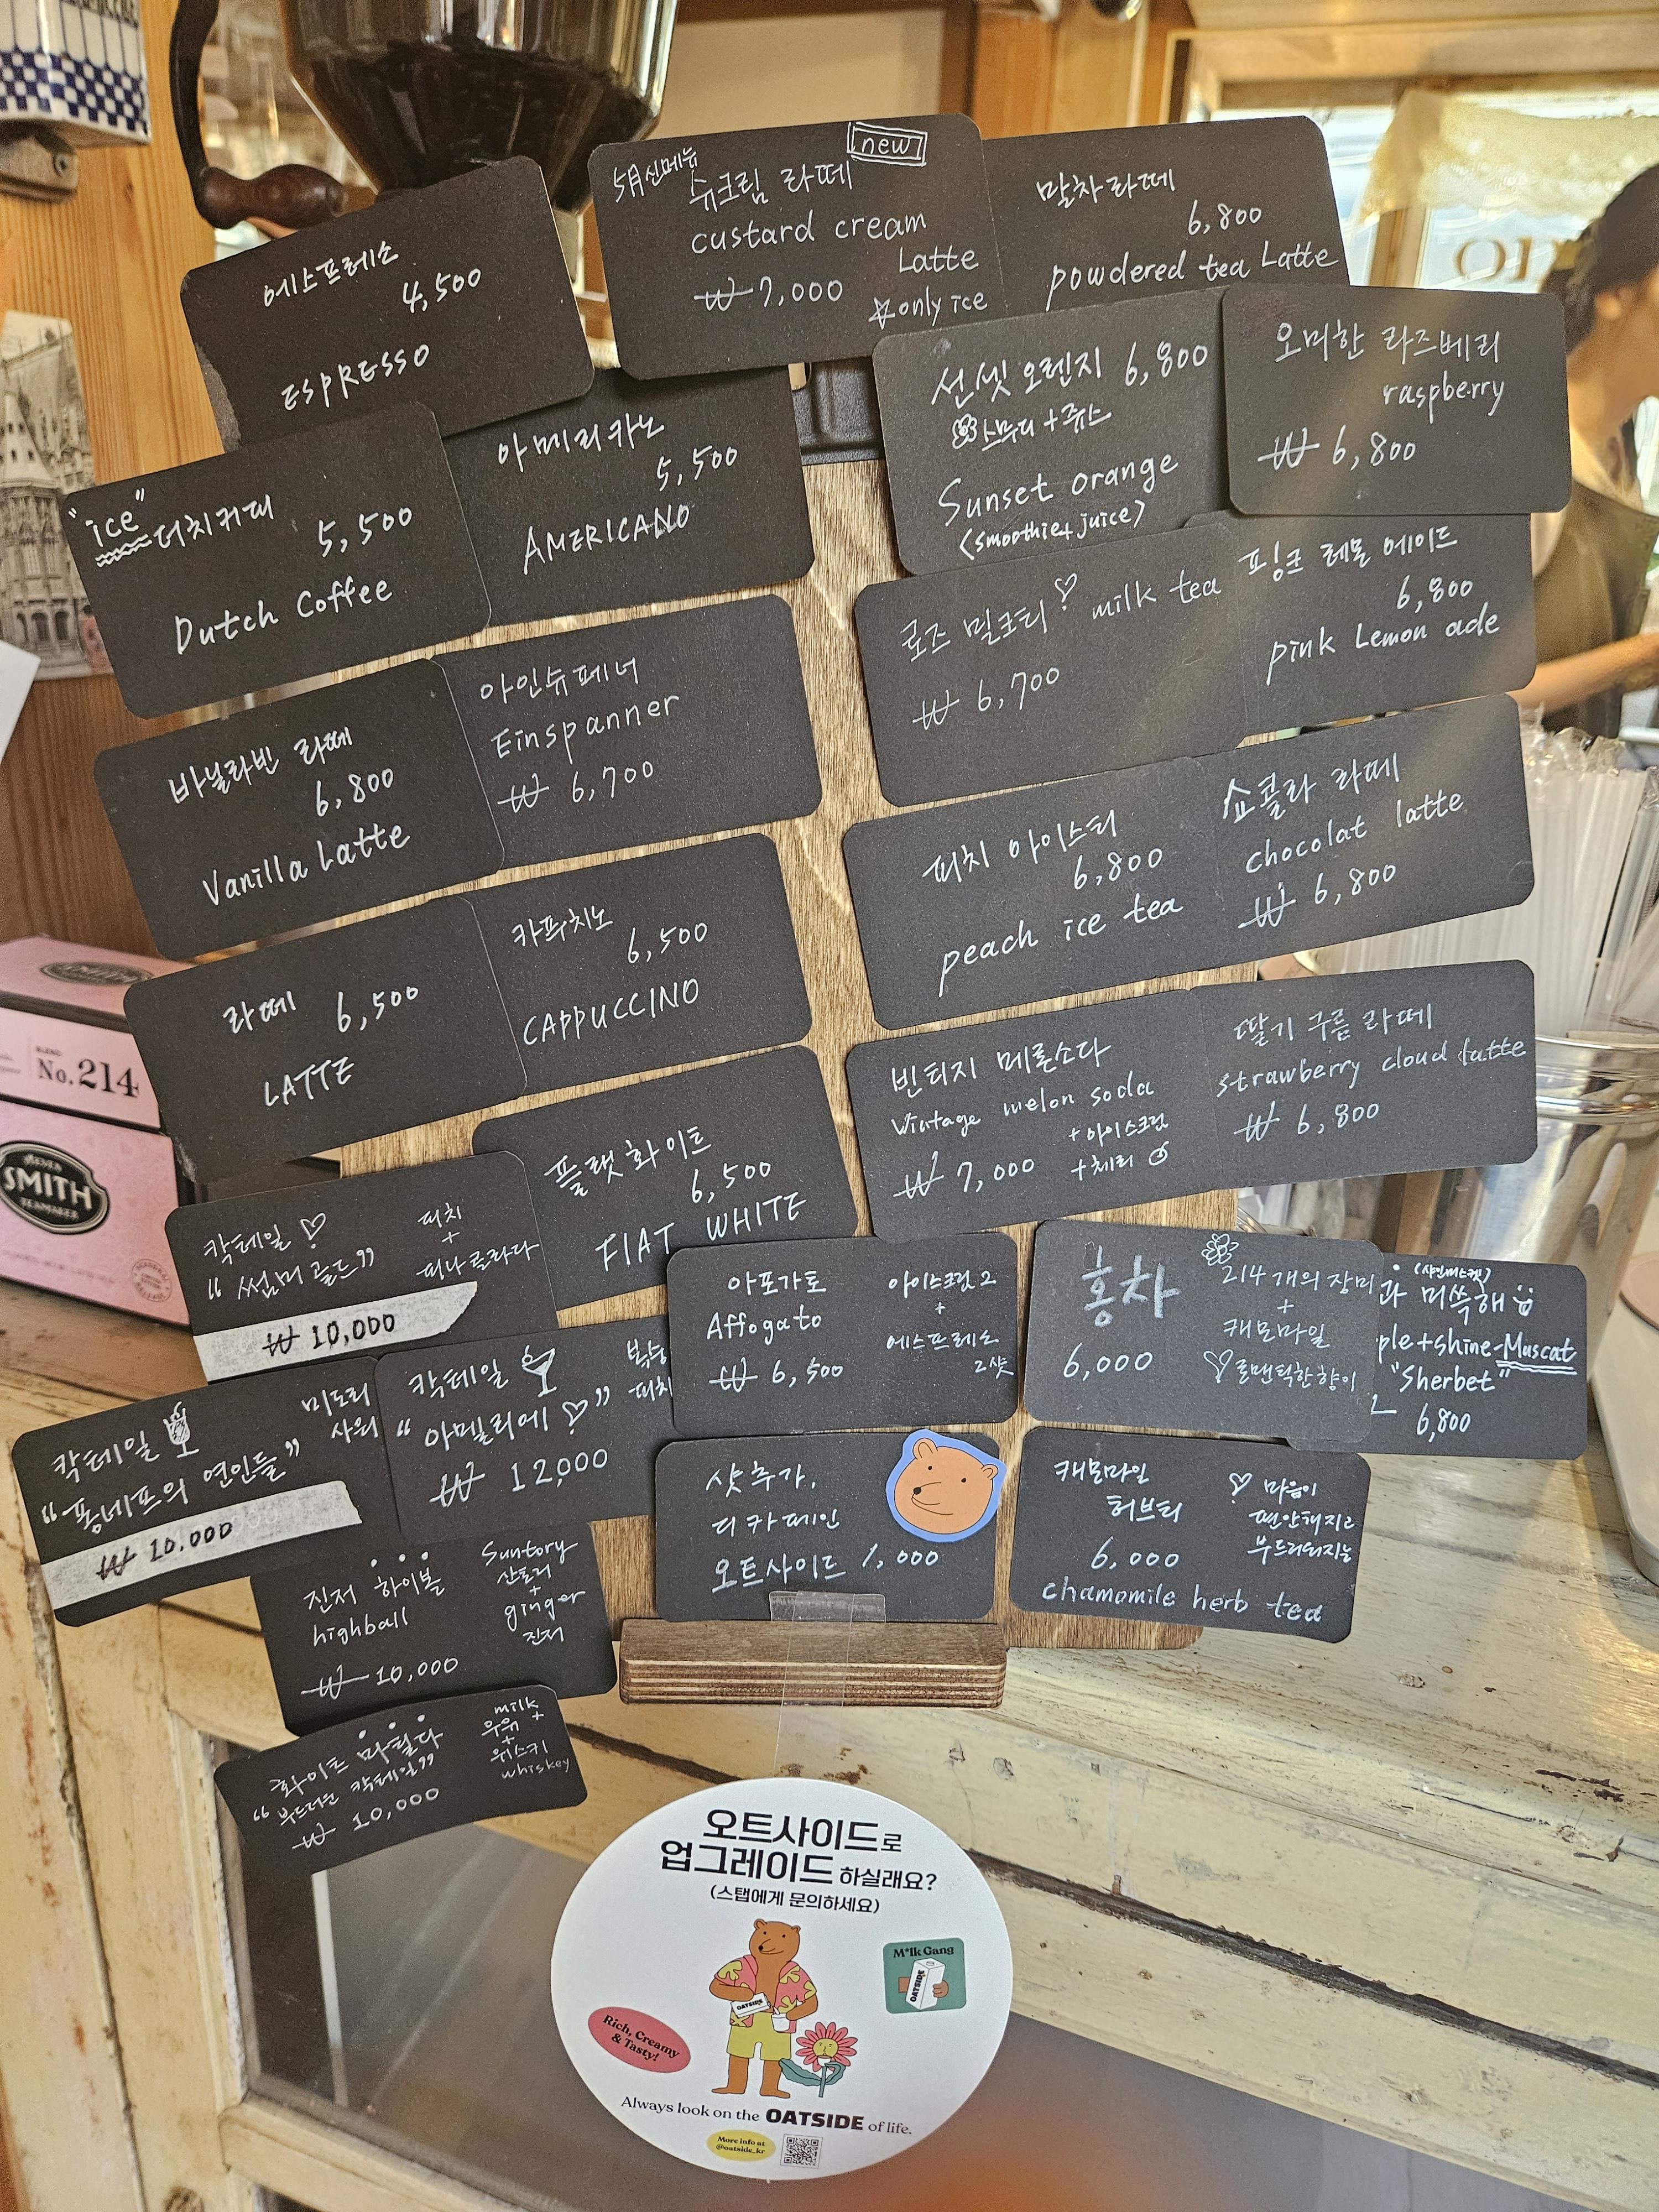 에스프레소
4,500
ESPRESSO
5月신메뉴
new
슈크림 라떼
custard cream
Latte
₩ 7,000
☆only ice
말차라떼
6,800
powdered tea Latte
"ice"
더치커피
5,500
Dutch Coffee
아메리카노
5,500
AMERICANO
선셋 오렌지 6,800
스무디+쥬스
Sunset orange
<smoothie+juice>
오미한 라즈베리
raspberry
₩ 6,800
바닐라빈 라떼
6,800
Vanilla Latte
아인슈페너
Einspanner
₩ 6,700
로즈 밀크티♡ milk tea
₩ 6,700
핑크 레몬 에이드
6,800
pink Lemon ade
라떼 6,500
LATTE
카푸치노
6,500
CAPPUCCINO
피치 아이스티
6,800
peach ice tea
쇼콜라 라떼
chocolat latte
₩ 6,800
플랫화이트
6,500
FlAT WHITE
빈티지 메론소다
Vintage melon soda
+아이스크림
₩ 7,000 +체리
딸기 구름 라떼
strawberry cloud latte
₩ 6,800
칵테일 ♡
"썸머 골드"
피치
+
피나콜라다
₩ 10,000
칵테일
"퐁네프의 연인들"
미도리
사워
₩ 10,000
칵테일
"아멜리에 ♡"
₩ 12,000
피치
아포가토
Affogato
₩ 6,500
아이스크림 2
+
에스프레소
2샷
홍차
6,000
214 개의 장미
+
캐모마일
♡로맨틱한향이
(샤인머스켓)
과 머쓱해
ple+shine-Muscat
"Sherbet"
6,800
진저 하이볼
highball
₩ 10,000
Suntory
산토리
+
ginger
진저
샷추가,
디카페인
오트사이드 1,000
캐모마일
허브티
6,000
chamomile herb tea
♡ 마음이
편안해지고
부드러워지는
화이트 마틸다
"부드러운 칵테일"
₩ 10,000
milk
우유 +
+
위스키
whiskey
No.214
STEVEN
SMITH
TEAMAKER
오트사이드로
업그레이드 하실래요?
(스탭에게 문의하세요)
M*lk Gang
OATSIDE
OATSIDE
Rich, Creamy
& Tasty!
Always look on the OATSIDE of life.
More info at
@oatside_kr